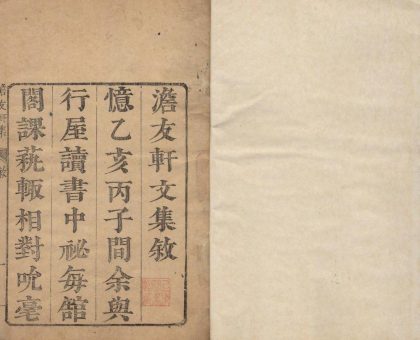 澹友軒文集敘
憶乙亥丙子間余與
行屋讀書中祕每館
閣課蓺輙相對吮毫